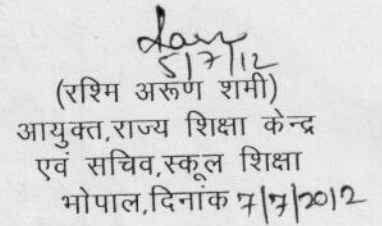 5/7/12
(रश्मि अरूण शमी)
आयुक्त,राज्य शिक्षा केन्द्र
एवं सचिव,स्कूल शिक्षा
भोपाल,दिनांक 7/7/2012